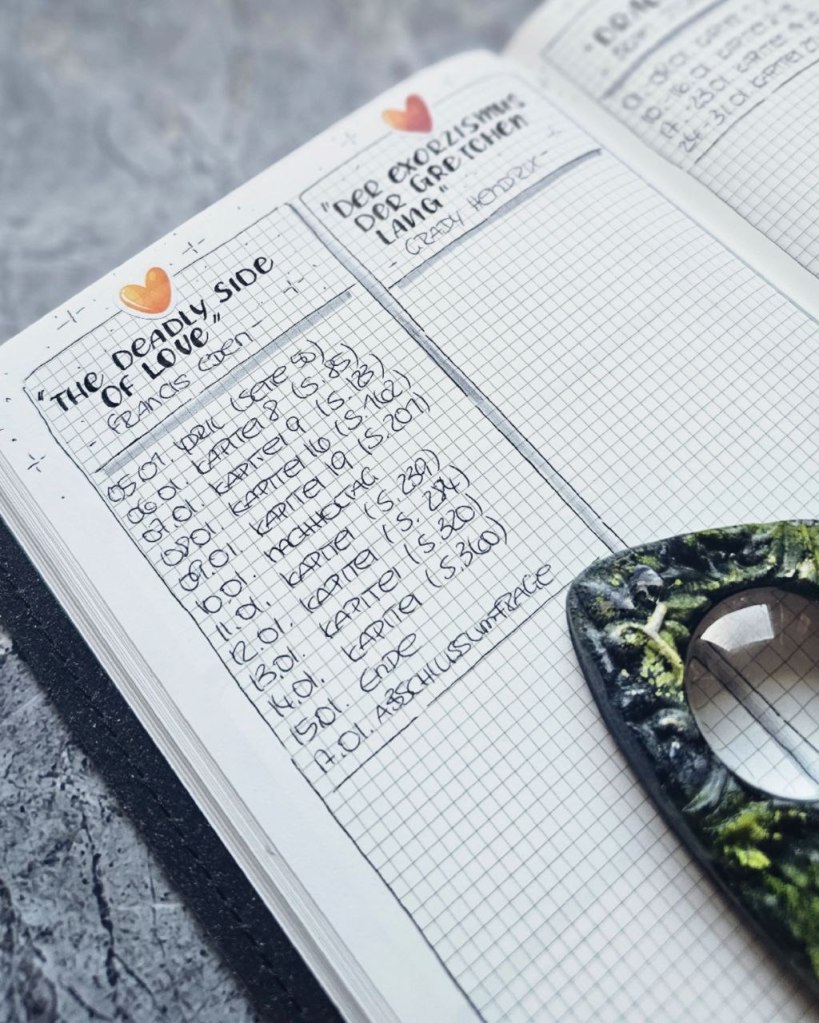 "THE DEADLY SIDE
OF LOVE"
- FRANCIS EDEN -
05.01. (SEITE 50)
06.01. KAPITEL 8 (S. 85)
07.01. KAPITEL 9 (S. 123)
08.01. KAPITEL 16 (S. 162)
09.01. KAPITEL 19 (S. 201)
10.01. NACHHOLTAG
11.01. KAPITEL (S. 239)
12.01. KAPITEL (S. 284)
13.01. KAPITEL (S. 320)
14.01. KAPITEL (S. 360)
15.01. ENDE
17.01. ABSCHLUSSUMFRAGE
"DER EXORZISMUS
DER GRETCHEN
LANG"
- GRADY HENDRIX -
01. - 09.01. KAPITEL
10. - 16.01. KAPITEL
17. - 23.01. KAPITEL
24. - 31.01. KAPITEL